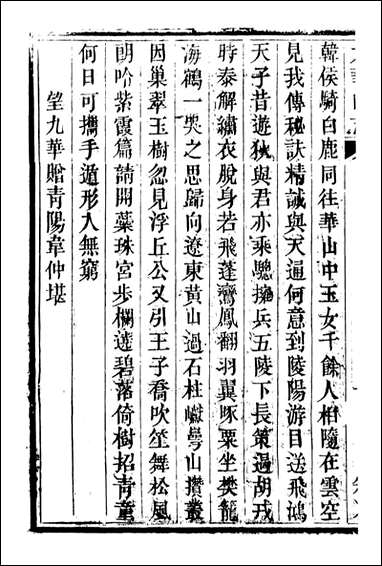 韓侯騎白鹿同往華山中玉女千餘人相隨在雲空
見我傳秘訣精誠與天通何意到陵陽游目送飛鴻
天子昔遊狄與君亦乘驄擁兵五陵下長策遏胡戎
時泰解繡衣脫身若飛蓬鸞鳳翻羽翼啄粟坐樊籠
海鶴一笑之思歸向遼東黃山過石柱巘崿山攢叢
因巢翠玉樹忽見浮丘公又引王子喬吹笙舞松風
朗吟紫霞篇請開蘂珠宮步欄遶碧落倚樹招青童
何日可攜手遺形入無窮
望九華贈青陽韋仲堪